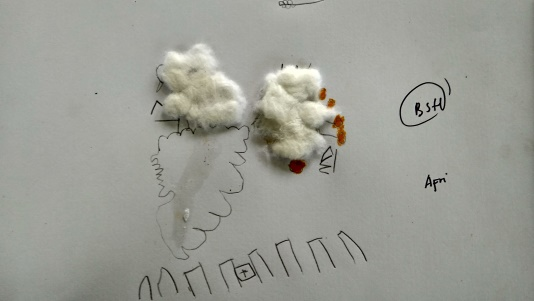 BSH
Apri